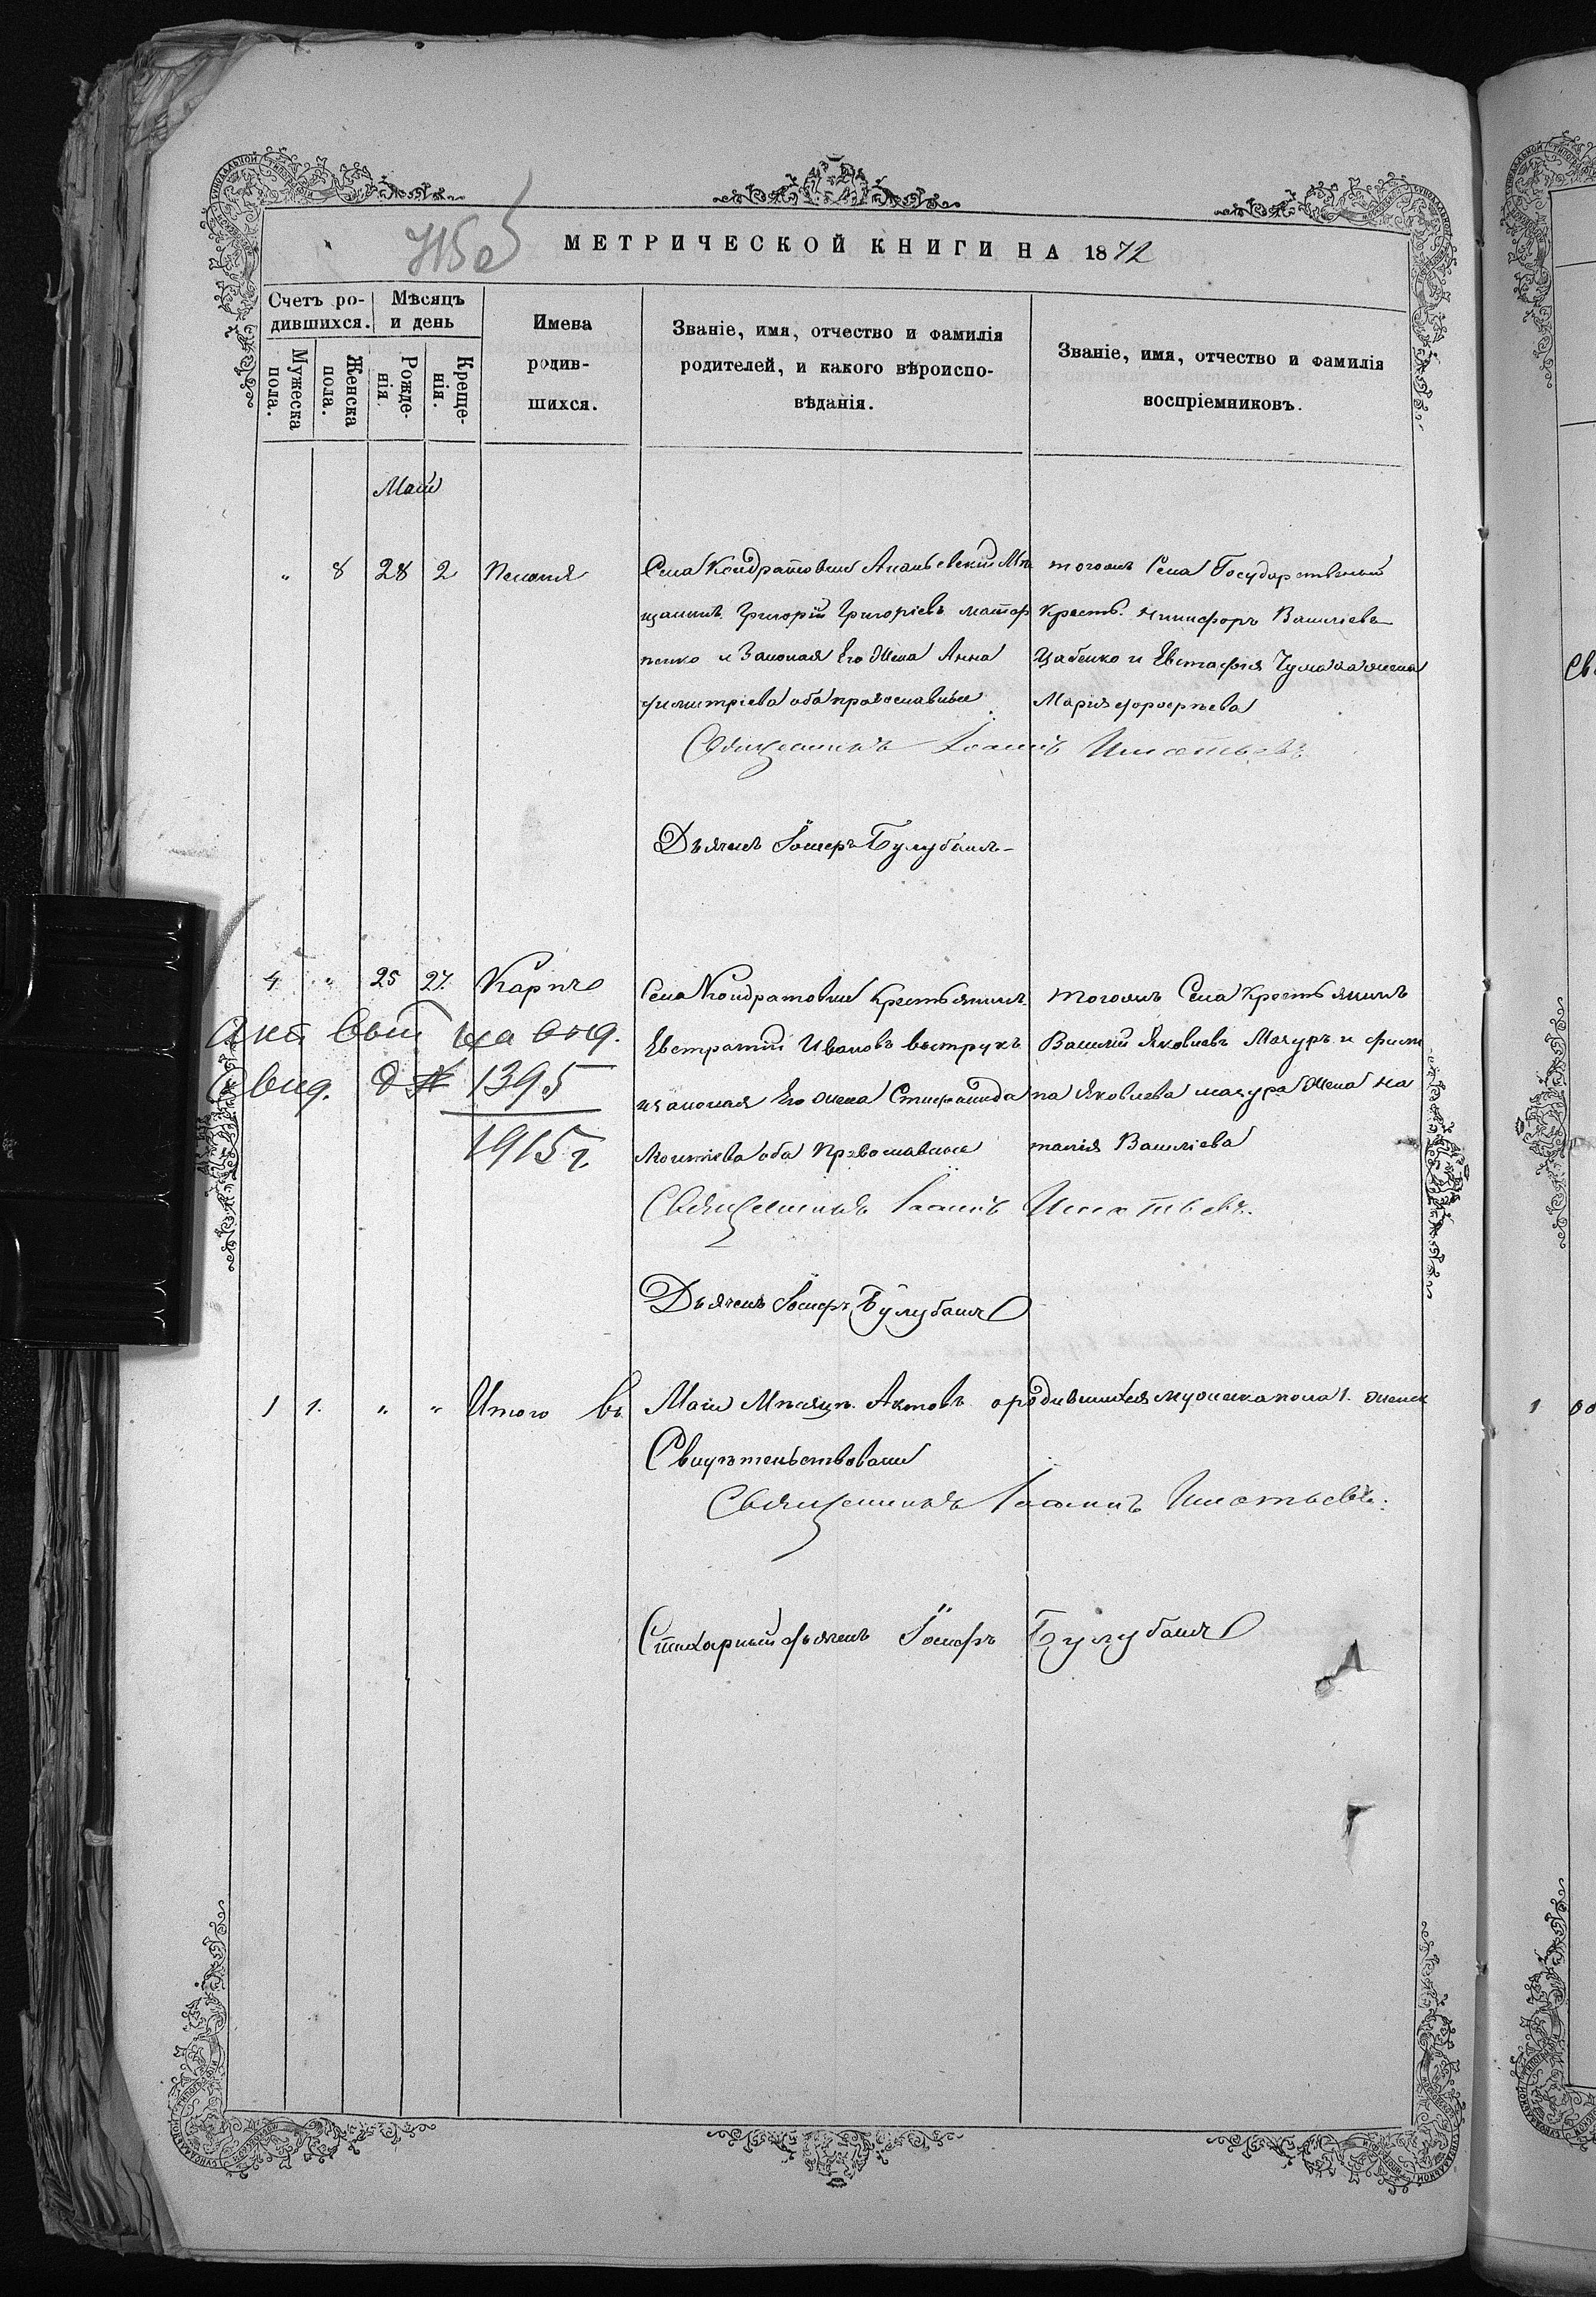 МЕТРИЧЕСКОЙ КНИГИ НА 1872
Счетъ ро-
дившихся.
Мѣсяцъ
и день
Мужеска
пола.
Женска
пола.
Рожде-
нія.
Креще-
нія.
Имена
родив-
шихся.
Званіе, имя, отчество и фамилія
родителей, и какого вѣроиспо-
вѣданія.
Званіе, имя, отчество и фамилія
воспріемниковъ.
Маій
" 8 28 2 Пелагія
Села Кондратовки Ананьевскій Мѣ
щанинъ Григорій Григоріевъ
и Законная Его Жена Анна
Димитріева оба православные
тогожъ Села Государственый
Крестъ. Никифоръ Василіевъ
Цабенко и Евстафія жена
Марія
Священникъ Іоаннъ Игнатьевъ
Дьячекъ Іосифъ Булубашъ
4 " 25 27 Карпъ
Села Кондратовки Крестьянинъ
Евстратій Ивановъ
изаконная Его жена Стефанида
Леонтіева оба Православные
тогожъ Села Крестьянинъ
Василій Яковлевъ Мазуръ и Фили
па Яковлева мазура жена На
талія Василіева
Акт выд на
Свид. № 1395
1915 г.
Священникъ Іоаннъ Игнатьевъ
Дьячекъ Іосифъ Булубашъ
1 1. " " Итого въ Маіи Мѣсяцѣ Актовъ ородившихся мужеска пола 1. женск
Свидѣтельствовали
Священникъ Іоаннъ Игнатьевъ
Стихарный дьячекъ Іосифъ Булубашъ